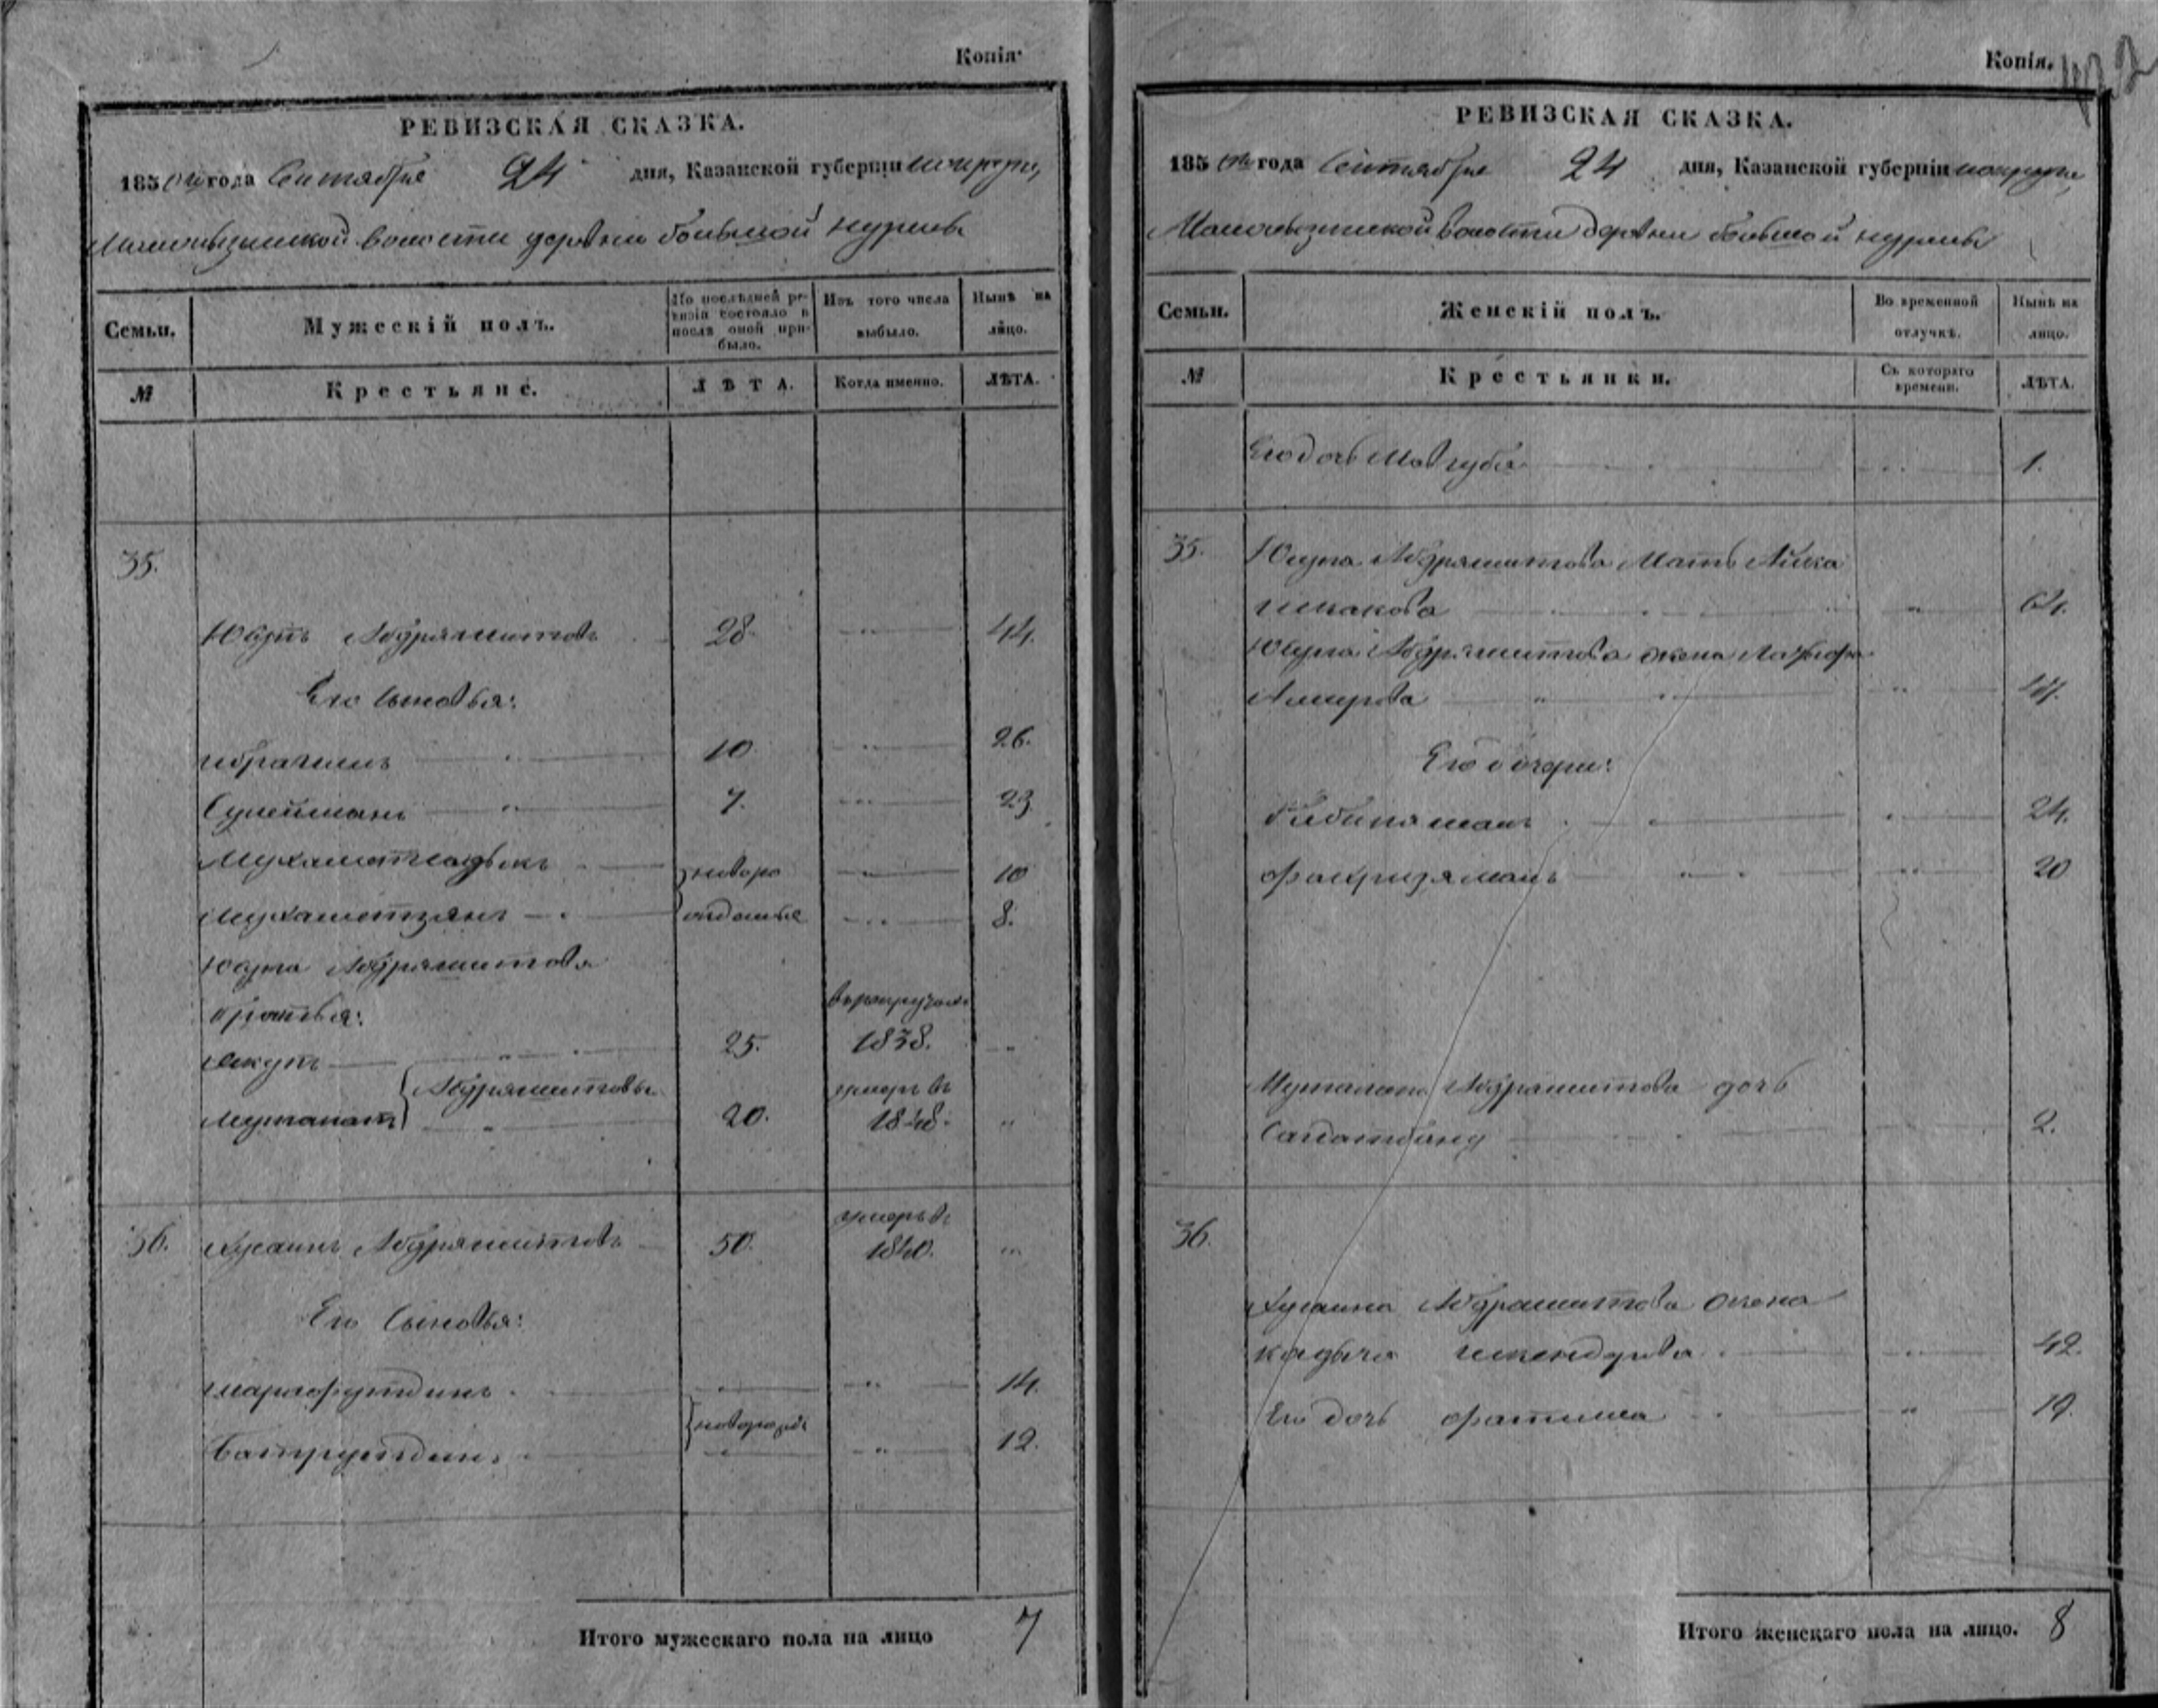 Копія.
РЕВИЗСКАЯ СКАЗКА.
1850го года Сентября 24 дня, Казанской губерніи
волости деревни большой нурмы
Семьи.
Мужескій полъ.
По послѣдней ревизіи состояло и
послѣ оной прибыло.
Изъ того числа
выбыло.
Нынѣ на
лицо.
№
Крестьяне.
ЛѢТА.
Когда именно.
ЛѢТА.
35.
Юсупъ Абдряшитовъ 28. 44.
Его сыновья:
ибрагимъ 10. 26.
Сулейманъ 7. 23.
Мухаметсадыкъ новоро 10
Мухаметзянъ жденные 8.
Юсупа Абдряшитова
братья:
якупъ 25. 1838.
Абдряшитовы
20. умеръ въ 1848.
36. Хусаинъ Абдряшитовъ 50. умеръ въ 1840.
Его сыновья:
шарафутдинъ 14.
новорожд
батрутдинъ 12.
Итого мужескаго пола на лицо 7
Копія.
РЕВИЗСКАЯ СКАЗКА.
1850го года Сентября 24 дня, Казанской губерніи
волости деревни большой нурмы
Семьи.
Женскій полъ.
Во временной
отлучкѣ.
Нынѣ на
лицо.
№
Крестьянки.
Съ котораго
времени.
ЛѢТА.
Его дочь Мавгуба 1.
35. Юсупа Абдряшитова Мать
64.
Юсупа Абдряшитова жена
Амирова 44.
Его дочери:
24.
фахризямалъ 20
Абдряшитова дочь
2.
36.
Хусаина Абдряшитова жена
искендирова 42.
Его дочь фатима 19.
Итого женскаго пола на лицо. 8